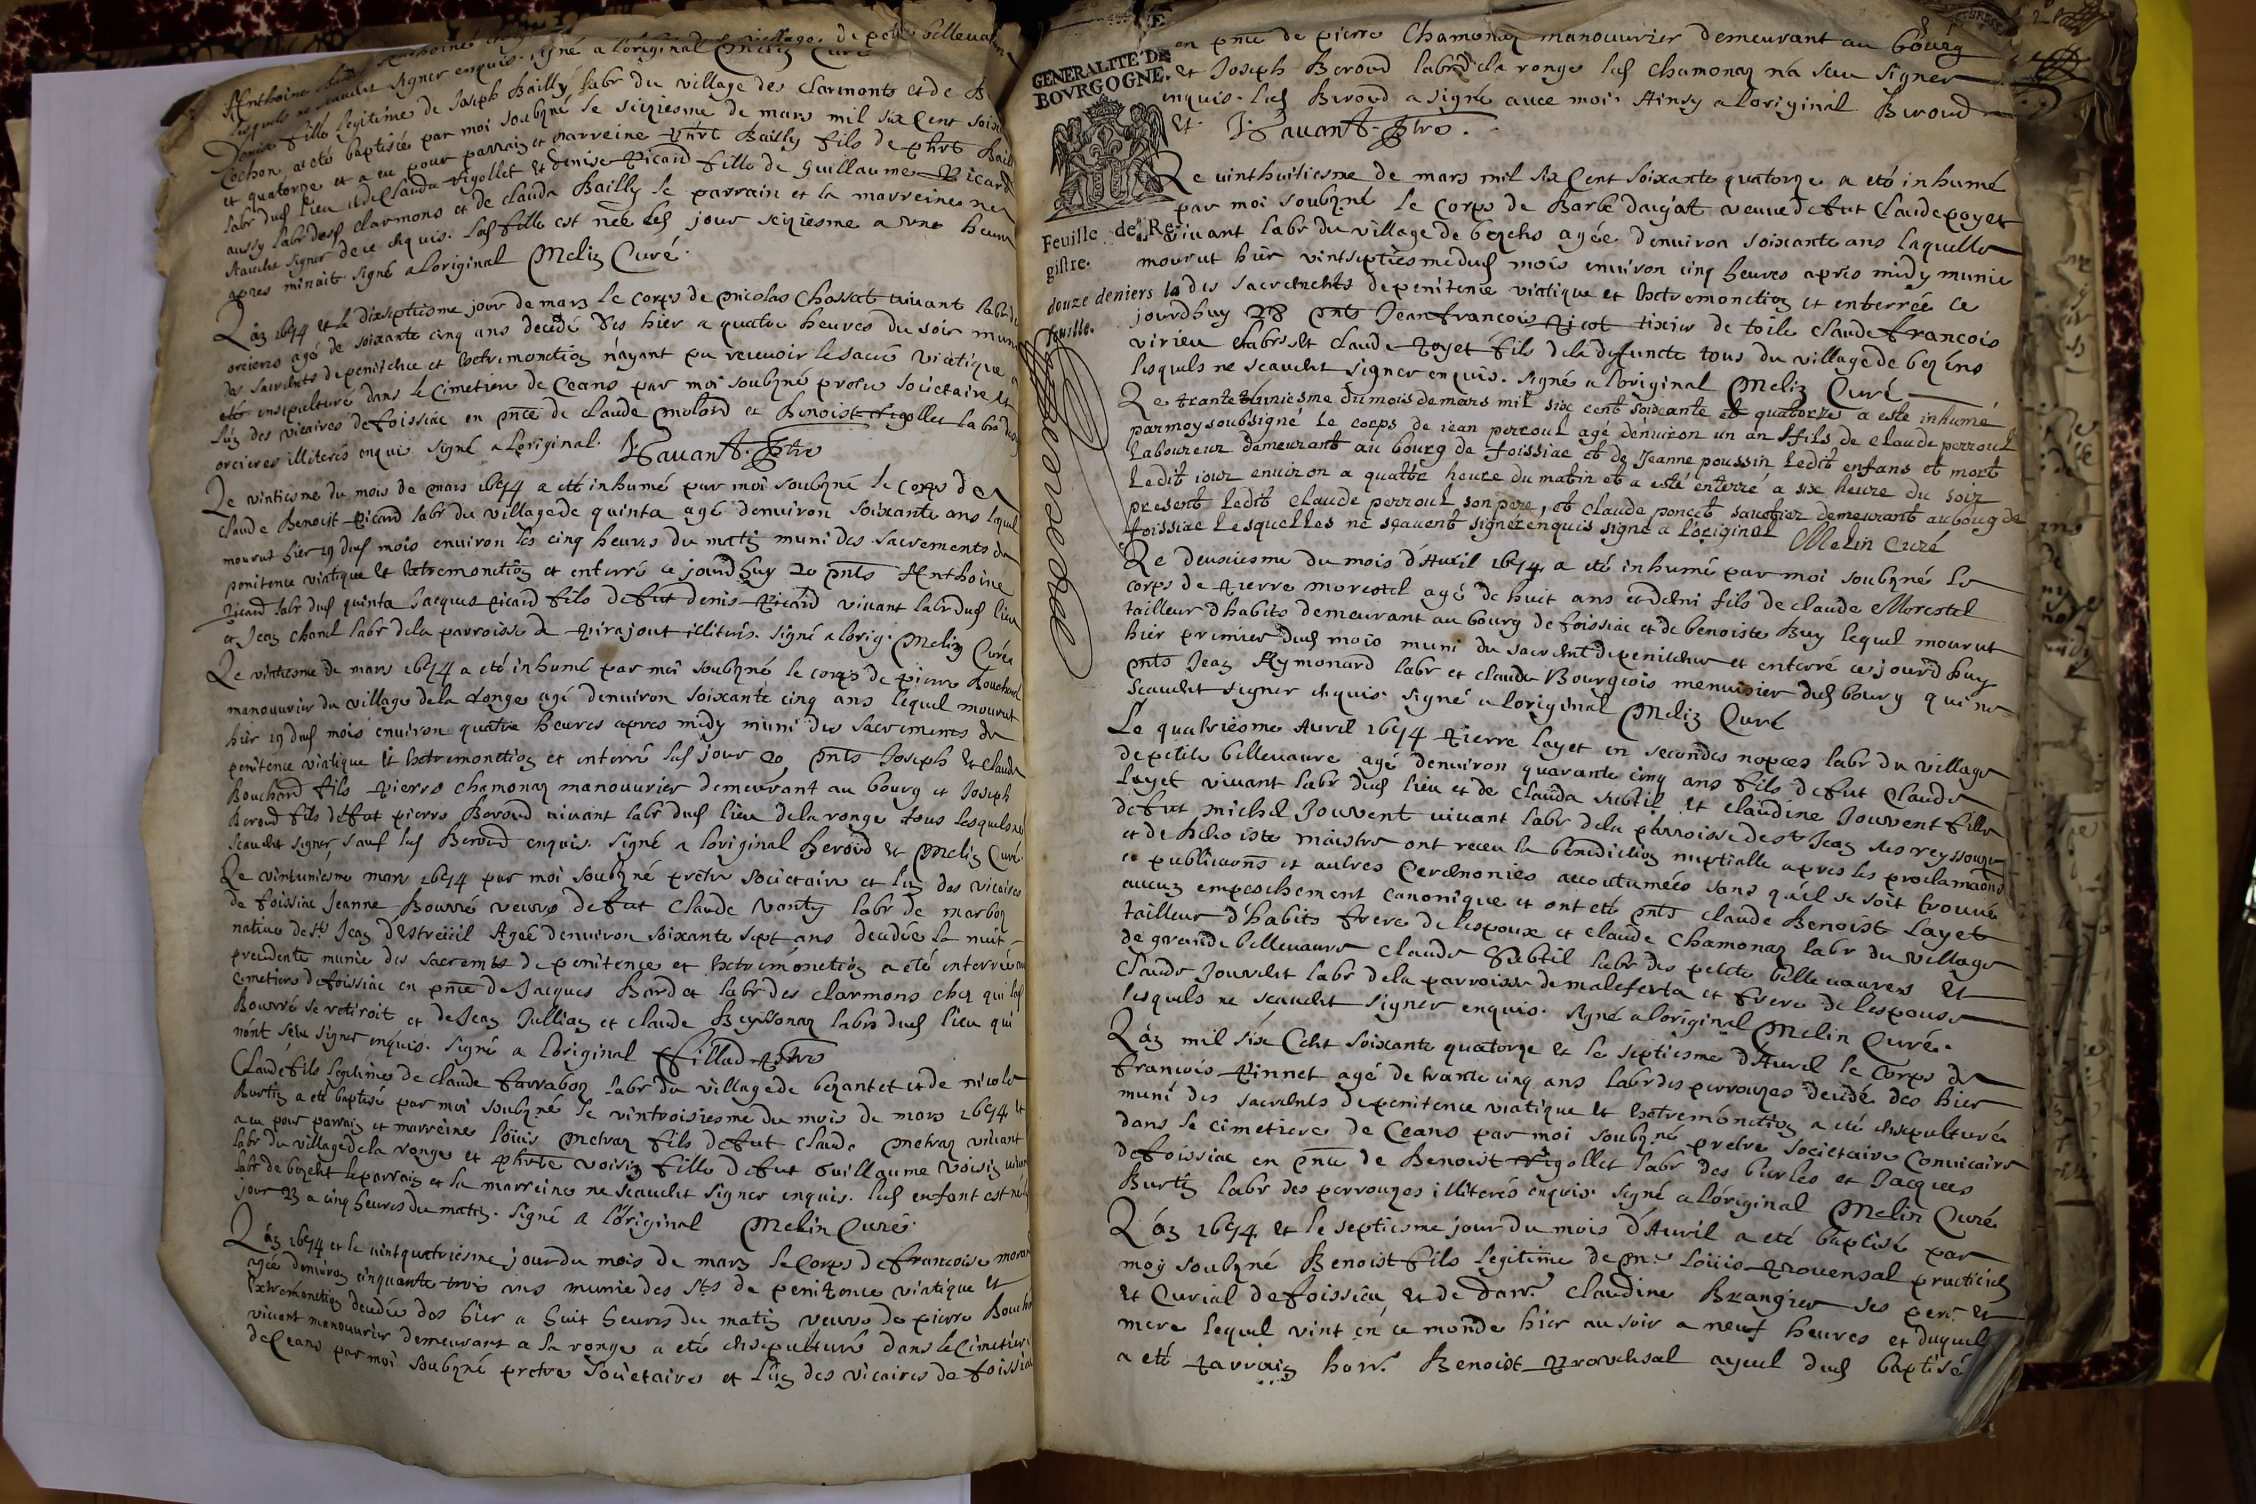 lesquels ne scauent signer enquis. signé a loriginal Meliz Curé
Denise fille legitime de Joseph Bailly labr du village des clarmonts et de
Cochon a eté baptisée par moi soubzné le seiziesme de mars mil six Cent soix
et quatorze et a eu pour parrain et marreine phrt Bailly fils de phrt Bailly
labr dud lieu de Claude rigollet et denise Picard fille de guillaume Picard
aussy labr desd clarmons et de clauda Bailly le parrain et la marreine ne
scauent signer de ce enquis. lad fille est née led jour seiziesme a une heure
apres minuit signé a loriginal Meliz Curé.
L'an 1674 et le dixseptiesme jour de mars le corps de nicolas Chossat viuant labr d
orcieres agé de soixante cinq ans decedé des hier a quatre heures du soir muni
des sacrents de penitence et Extremonction n'ayant pu receuoir le sacré viatique a
eté ensepulturé dans le Cimetiere de Ceans par moi soubzné pretre societaire et
l'un des vicaires de foissiac en pnce de claude molard et Benoist rigollet labrs dud
orcieres illiterés enquis signé a loriginal. Pauant Ptre
Le vintiesme du mois de mars 1674 a eté inhumé par moi soubzné le corps de
Claude Benoist Picard labr du village de quinta agé denuiron soixante ans lequel
mourut hier 19 dud mois enuiron les cinq heures du matin muni des sacrements de
penitence viatique et Extremonction et enterré ce jourdhuy 20 pnts Anthoine
Picard labr dud quinta Jacques Picard fils de fut denis Picard viuant labr dud lieu
et Jean chanel labr de la parroisse de Pirajout illiterés. signé a lorig. Meliz Curé
Le vintiesme de mars 1674 a eté inhumé par moi soubzné le corps de pierre Bouchard
manouurier du village de la ronge agé denuiron soixante cinq ans lequel mourut
hier 19 dud mois enuiron quatre heures apres midy muni des sacrements de
penitence viatique et Extremonction et enterré led jour 20 pnts Joseph et Claude
Bouchard fils Pierre chamonaz manouurier demeurant au bourg et Joseph
Beroud fils de fut pierre Beroud viuant labr dud lieu de la ronge tous lesquels ne
scauent signer sauf led Beroud enquis. signé a loriginal Beroud et Meliz Curé
Le vintuniesme mars 1674 par moi soubzné pretre societaire et l'un des vicaires
de foissiac Jeanne Bourré veuve de fut Claude Vanty labr de marboz
natiue de st Jean d'Estreüil Agée denuiron soixante sept ans decedée la nuit
precedente munie des sacremts de penitence et Extremonction a eté enterrée au
Cimetiere de foissiac en pnce de Jacques Bardet labr des clarmons chez qui lad
Bourré se retiroit et de Jean Jullian et claude Beyssonaz labrs dud lieu qui
n'ont sceu signer enquis. signé a loriginal Fillad Ptre
Claude fils legitime de claude farrabou labr du village de bezantet et de nicole
Burtin a eté baptisé par moi soubzné le vintroisiesme du mois de mars 1674 et
a eu pour parrain et marreine loüis Metraz fils de fut Claude Metraz viuant
labr du village de la ronge et phrte voisin fille de fut Guillaume Voisin viuant
labr de bezent le parrain et la marreine ne scauent signer enquis. led enfant est né led
jour 23 a cinq heures du matin. signé a loriginal Melin Curé.
L'an 1674 et le uintquatriesme jour du mois de mars le Corps de francoise morand
agée denuiron cinquante trois ans munie des Sts de penitence viatique et
Extremonction decedée des hier a huit heures du matin veuue de pierre Bouch
viuant manouurier demeurant a la ronge a eté ensepulturé dans le Cimetiere
de Ceans par moi soubzné pretre societaire et l'un des vicaires de foissiac
GENERALITE DE
BOVRGOGNE.
Feuille de Re-
gistre.
douze deniers la
feuille.
en pnce de pierre Chamonaz manouurier demeurant au bourg
et Joseph Beroud labr de la ronge led Chamonaz n'a sceu signer
enquis. led Beroud a signé auec moi. Ainsy a loriginal Beroud
et Pauant. Ptre.
Le uinthuitiesme de mars mil six Cent soixante quatorze a eté inhumé
par moi soubzné le Corps de Barbe daujat veuue de fut Claude poyet
viuant labr du village de bezens agée denuiron soixante ans laquelle
mourut hier vintseptiesme dud mois enuiron cinq heures apres midy munie
des sacrements de penitence viatique et Extremonction et enterrée ce
jourdhuy 28 pnts Jean francois Picot tixier de toile claude francois
virieu labrs et claude Poyet fils de la defuncte tous du village de bezens
lesquels ne scauent signer enquis. signé a loriginal Meliz Curé
Le trante uniesme du mois de mars mil six cent soixante et quatorze a esté inhumé
par moy soubsigné Le corps de jean perroul agé denuiron un an fils de claude perroul
Laboureur demeurant au bourg de foissiac et de Jeanne poussin Ledit enfans et mort
Ledit iour enuiron a quatre heure du matin et a esté enterré a six heure du soir
present ledit claude perroul son pere, et claude poncet sauetier demeurant au boug de
foissiac Lesquelles ne sçauent signér enquis signé a l'original Melin Curé
Le deuxiesme du mois d'Auril 1674 a eté inhumé par moi soubzné le
corps de Pierre morestel agé de huit ans et demi fils de claude Morestel
tailleur d'habits demeurant au bourg de foissiac et de benoiste Buy lequel mourut
hier premier dud mois muni du sacrent de penitence et enterré ce jourdhuy
pnts Jean Aymonard labr et claude Bourgeois menuisier dud bourg qui ne
scauent signer enquis. signé a loriginal Meliz Curé
Le quatriesme Auril 1674 Pierre layet en secondes nopces labr du village
de petite belleuaure agé denuiron quarante cinq ans fils de fut Claude
Layet viuant labr dud lieu et de Clauda subtil et claudine Jouuent fille
de fut michel Jouuent viuant labr de la parroisse de st Jean sus reyssouze
et de benoiste maistre ont receu la benediction nuptialle apres les proclamaons
et publicaons et autres Ceremonies accoutumées sans qu'il se soit trouué
aucun empeschement Canonique et ont eté pnts claude Benoist Layet
tailleur d'habits frere de lespoux et claude Chamonaz labr du village
de grande belleuaure Claude Subtil labr de petite belleuaure et
Claude Jouuent labr de la parroisse de maleferta et frere de lespouse
lesquels ne scauent signer enquis. signé a loriginal Melin Curé.
L'an mil six Cent soixante quatorze et le septiesme d'Auril le Corps de
francois Pinnet agé de trante cinq ans labr des perrouzes decedé des hier
muni des sacrents de penitence viatique et Extremonction a eté ensepulturé
dans le cimetiere de Ceans par moi soubzné pretre societaire Conuicaire
de foissiac en pnce de Benoist rigollet labr des burles et Jacques
Burtin labr des perrouzes illiterés enquis. signé a loriginal Melin Curé
L'an 1674 et le septiesme jour du mois d'Auril a eté baptisé par
moy soubzné Benoist fils legitime de Me loüis Prouensal practicien
et Curial de foissia et de damlle Claudine Brangier ses pere et
mere lequel vint en ce monde hier au soir a neuf heures et duquel
a eté parrain honn. Benoist Prouensal ayeul dud baptisé